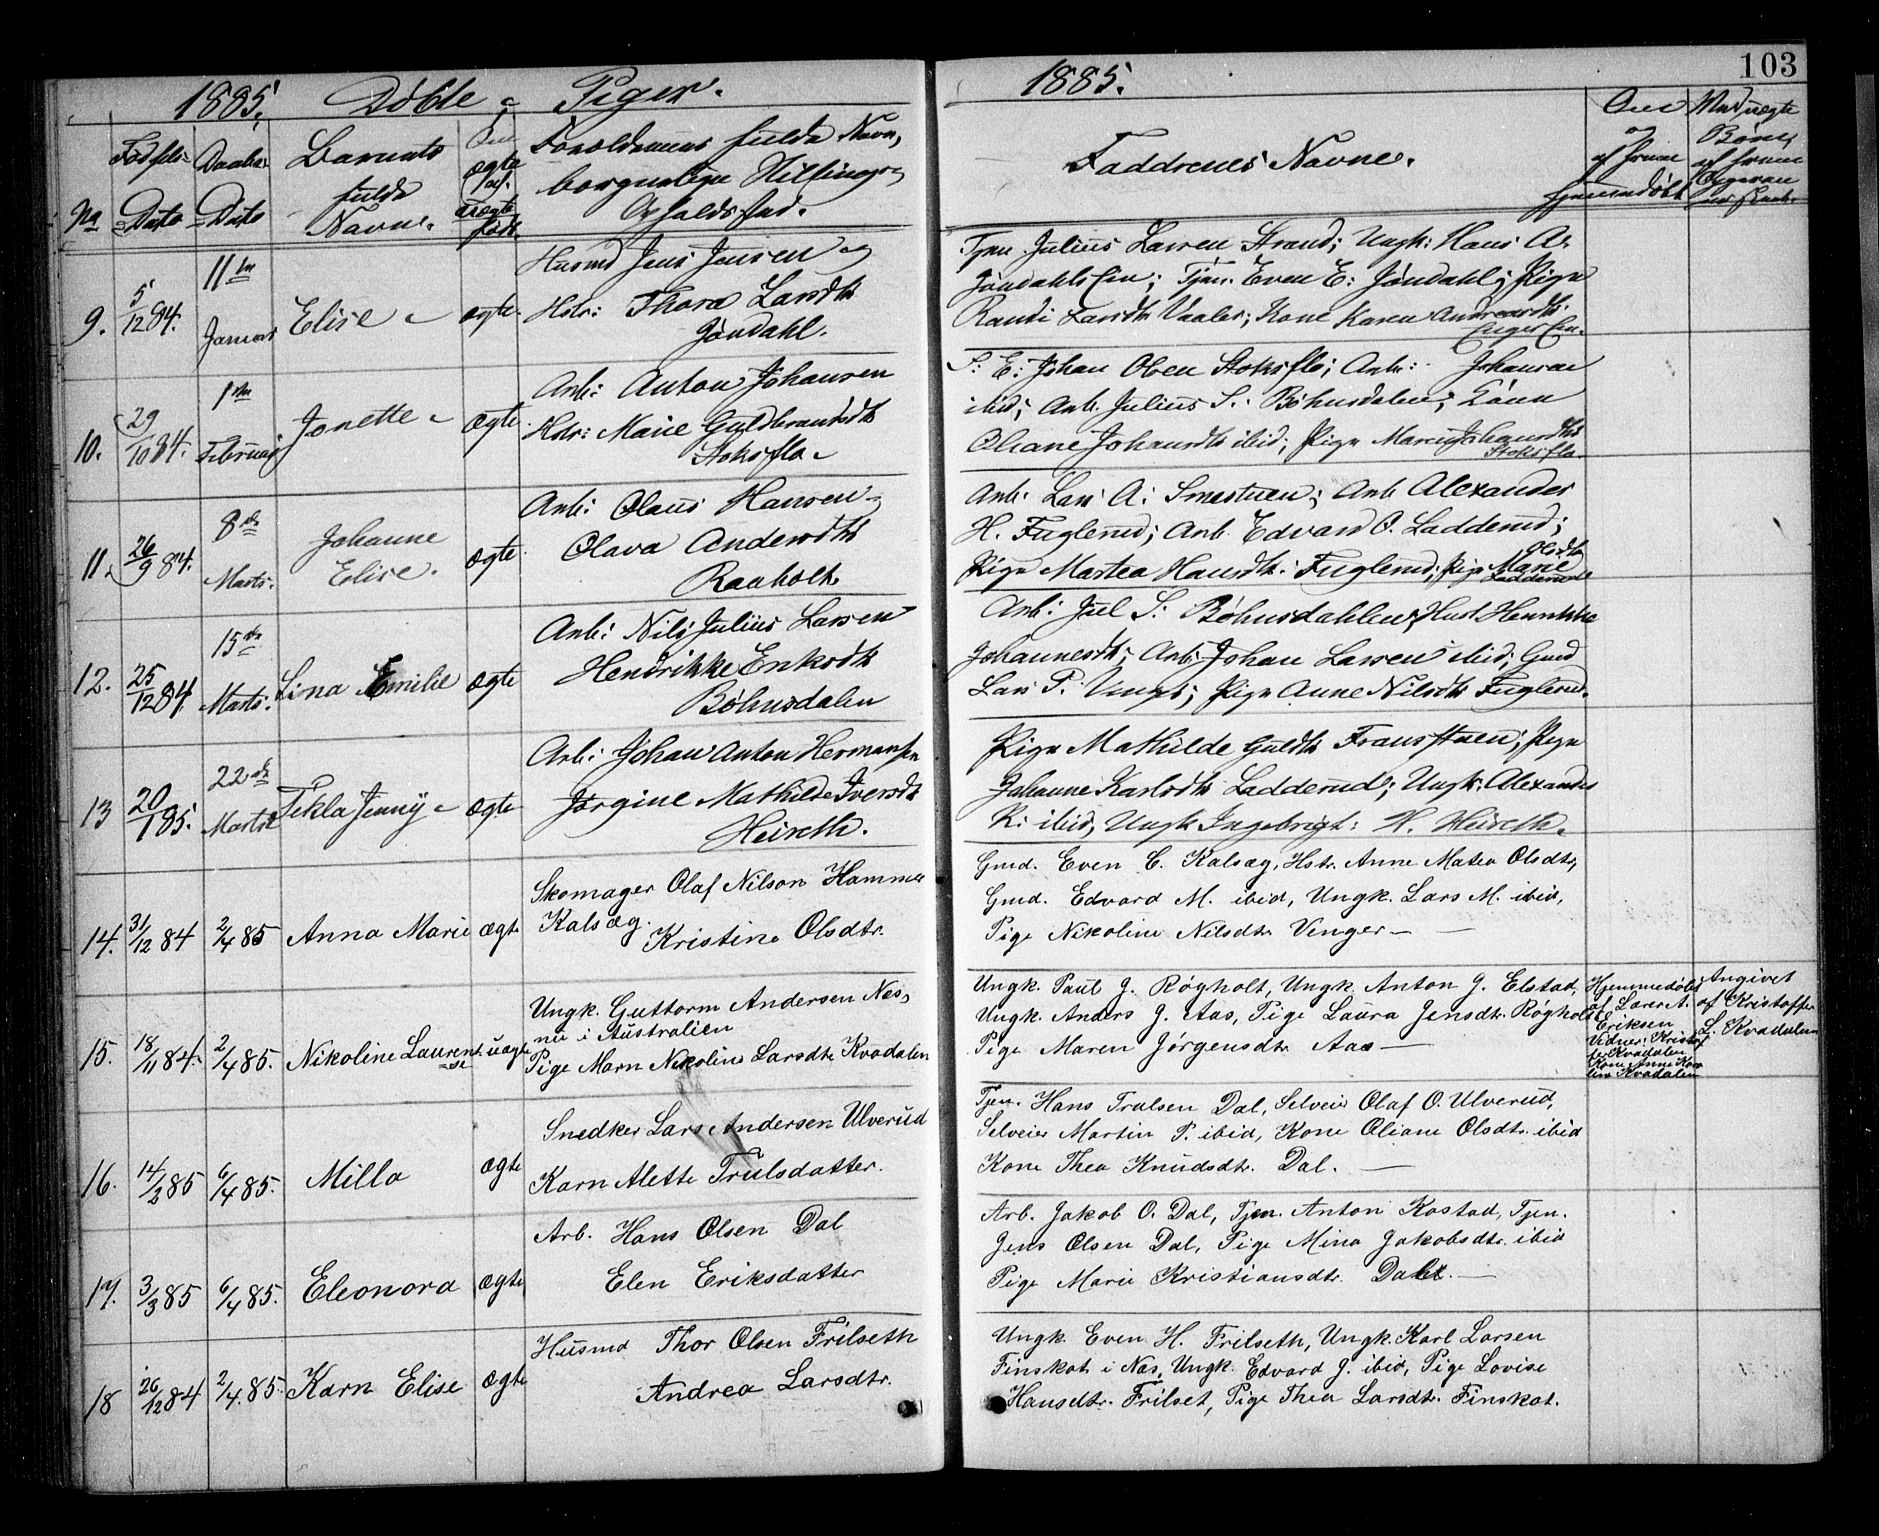 1885. Döbte Piger.
No
Fødsels-
Dato
Daabs-
Dato
Barnets
fulde
Navn.
Om
ægte
el.
uægte
født.
Forældrenes fulde Navn,
borgerlige Stilling,
Opholdssted.
9. 5/12 84. 11te Januar Elise ægte.
Husmd Jens Jensen og
Hstr: Thora Larsdtr
Jøndahl.
10. 29/10 84. 1ste Februar Jonette Ægte
Arb: Anton Johansen
Hstr: Marie Guldbrandsdtr
Stoksflo
11. 26/9 84. 8de Marts. Johanne Elise. Ægte
Arb: Olaus Hansen
Olava Andersdtr
Raaholt
12. 25/12 84 15de Marts. Lina Emilie Ægte
Arb: Nils Julius Larsen
Hendrikke Eriksdtr
Bøhnsdalen
13 20/1 85. 22de Marts Tekla Jenny Ægte
Arb: Johan Anton Hermansen
Jørgine Mathilde Iversdtr
Heireth.
14. 31/12 84 2/4 85 Anna Marie Ægte
Skomager Olaf Nilson Hammer
Kalsæg.
Kristine Olsdtr.
15. 18/11 84. 2/4 85. Nikoline Laurentse uægte
Ungk. Guttorm Andersen Næs,
nu i Australien
Pige Marn Nikoline Larsdtr Kvadalen
16. 14/2 85 6/4 85. Milla Ægte
Snedker Lars Andersen Ulverud
Karn Alette Trulsdatter.
17. 3/3 85 6/4 85. Eleonora Ægte
Arb. Hans Olsen Dal
Elen Eriksdatter
18 26/12 84 2/4. 85. Karn Elise Ægte
Husmd Thor Olsen Frilseth
Andrea Larsdtr.
1885.
103
Faddrenes Navne.
Om
af
hjemmedøbt
Ved uægte
Børn,
Tjen Julius Larsen Strand; Ungk: Hans A.
Jøndahls Eie; Tjen. Even E: Jøndahl; Pige
Randi Larsdtr Vaaler; Kone Karen Andreasdtr.
Enger Eie.
S: E: Johan Olsen Stoksflo; Arb: Johansen
ibid; Arb. Julius S. Bøhnsdalen; Kone
Oliane Johansdtr ibid; Pige Maren Johansdtr
Stoksflo.
Arb: Lars A: Smestuen; Arb Alexander
H. Fuglerud; Arb. Edvard O. Ladderud;
Pige Martea Hansdtr. Fuglerud; Pige Marie Olsdtr
Ladderud
Arb: Juel S: Bøhnsdahlen, Hust Henrikke
Johannesdtr; Arb: Johan Larsen ibid; Gmd
Lars P. Vinger; Pige Anne Nilsdtr Fuglerud.
Pige Mathilde Guldtr Fransstuen; Pige
Johanne Karlsdtr Ladderud; Ungk: Alexander
K: ibid, Ungk Ingebrigt: H. Heireth.
Gmd. Even C. Kalsæg, Hstr. Anne Matea Olsdtr,
Gmd. Edvard M. ibid, Ungk. Lars M. ibid,
Pige Nikoline Nilsdtr Vinger —
Ungk. Paul J. Røgholt, Ungk. Anton J. Elstad,
Ungk. Anders J. Aas, Pige Laura Jensdtr. Røgholt
Pige Maren Jørgensdtr Aas —
Hjemmedøbt
af Læreret.
Eriksen
Vidner: Kristof
fer Kvadalen
Kone Anne Kar
line Kvadalen
Angivet
af Kristoffer
L. Kvadalen
Tjen. Hans Trulsen Dal, Selveier Olaf O. Ulverud,
Selveier Martin P. ibid, Kone Oliane Olsdtr. ibid
Kone Thea Knudsdtr. Dal. —
Arb. Jakob O. Dal, Tjen. Anton Kostad, Tjen.
Jens Olsen Dal, Pige Mina Jakobsdtr. ibid
Pige Marie Kristiansdtr. Dahl. —
Ungk. Even H. Frilseth, Ungk. Karl Larsen
Finskot i Næs, Ungk. Edvard J. ibid, Pige Lovise
Hansdtr. Frilset, Pige Thea Larsdtr. Finskot.